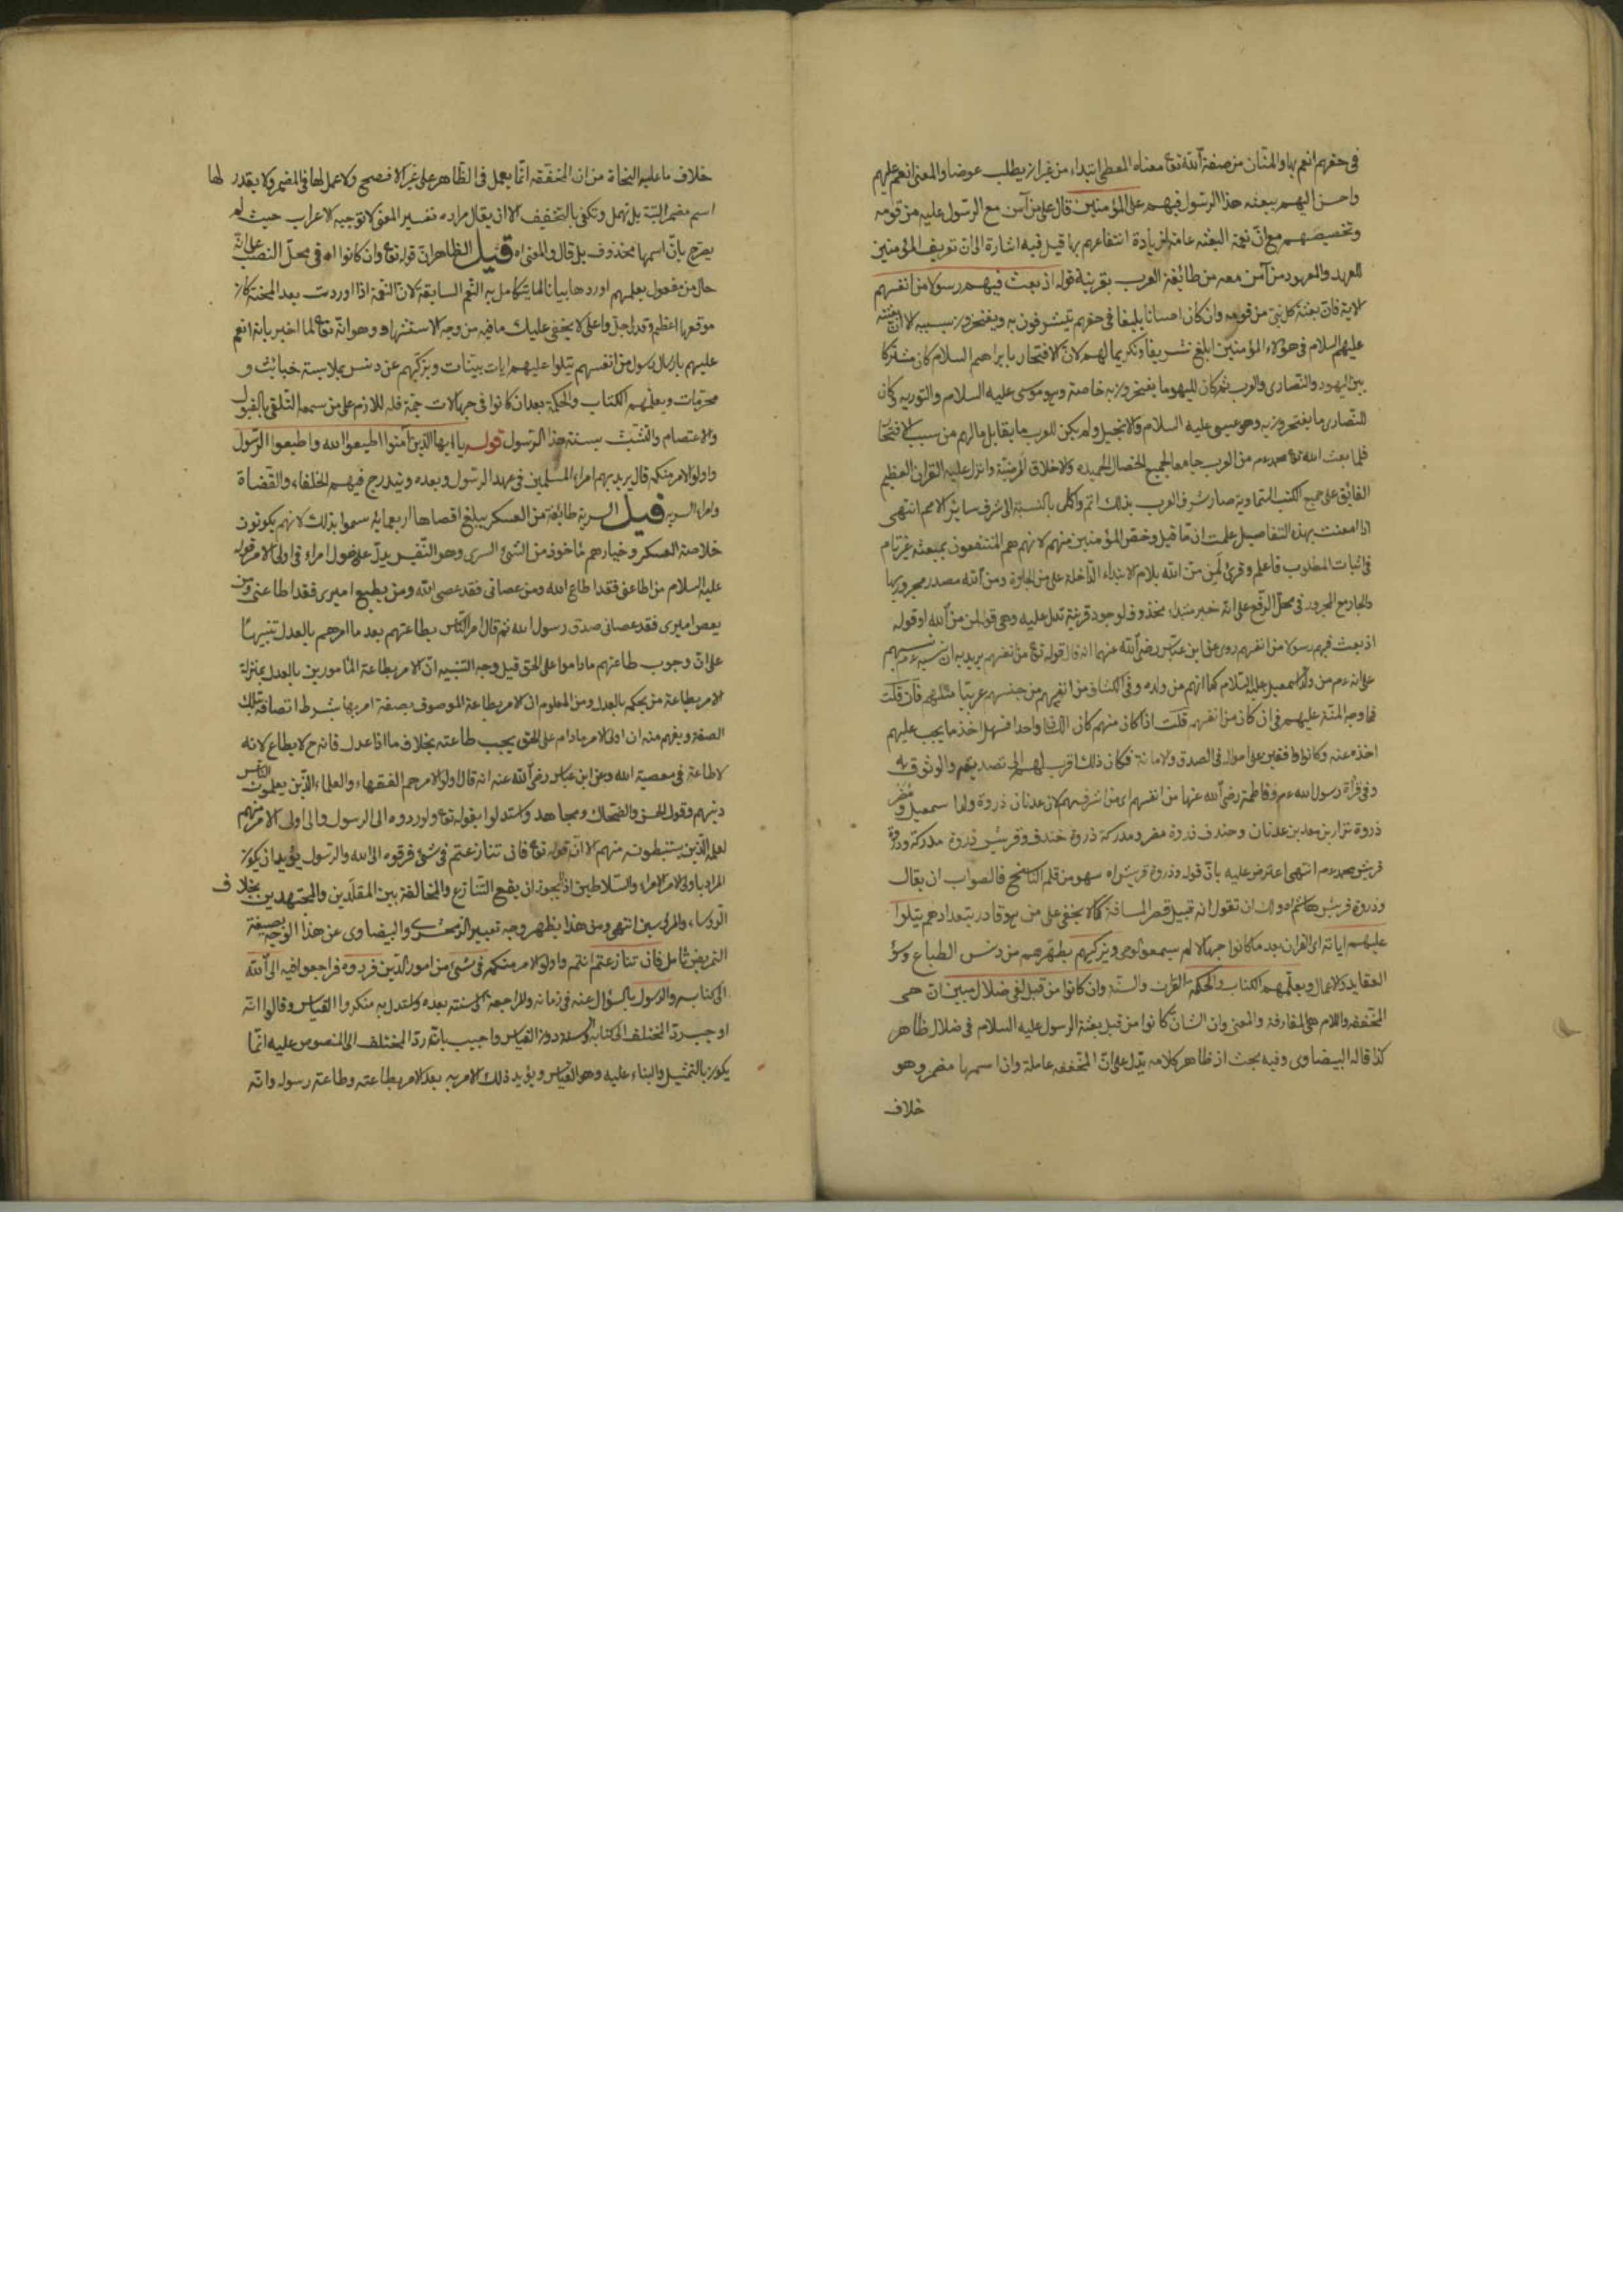 في حقهم انعم بها والمنّان من صفة الله تعا معناه المعطي ابتداء من غير ان يطلب عوضا والمعنى انعم عليهم
واحسن اليهم ببعثه هذا الرسول فيهم على المؤمنين قال على من آمن مع الرسول عليه من قومه
وتخصيصهم مع انّ نعمة البعثه عامة لزيادة انتفاعهم بها قيل فيه اشارة الى ان تعريف المؤمنين
للعهد والمعهود من آمن معه من طائفة العرب بقرينة قوله اذ بعث فيهم رسولا من انفسهم
الاية فان بعثة كل نبي من قومه وان كان احسانا بليغا في حقهم يتشرفون به ويفتخرون بسببه الا ان بعثته
عليهم السلام في هؤلاء المؤمنين ابلغ تشريفا وتكريما لهم لانّ الافتخار بابراهيم السلام كان مشتركا
بين اليهود والنصارى والعرب ثم كان لليهود ما يفتخرون به خاصة وهو موسى عليه السلام والتورية وكان
للنصارى ما يفتخرون به وهو عيسى عليه السلام والانجيل ولم يكن للعرب ما يقابل ما لهم من سبب الافتخار
فلما بعث الله تعا محمد عم من العرب جامعا لجميع الخصال الحميده والاخلاق المرضيّة وانزل عليه القران العظيم
الفائق على جميع الكتب السماوية صار شرف العرب بذلك اتم واكمل بالنسبة الى شرف سائر الامم انتهى
اذا امعنت بهذه التفاصيل علمت انّ ما قيل وخصّ المؤمنين منهم لانهم هم المنتفعون بمبعثه غير تام
في اثبات المطلوب فاعلم وقرئ لمن منّ الله بلام الابتداء الداخلة على من الجارة ومن الله مصدر مجرور بها
والجار مع المجرور في محل الرفع على انه خبر مبتدأ محذوف لوجود قرينة تدل عليه وهي قوله لمن من الله او قوله
اذ بعث فيهم رسولا من انفسهم روى عن ابن عباس رضي الله عنهما انه قال قوله تعا من انفسهم يريد به ان نسبه عم نسبهم
على انه عم من ولد اسمعيل عليه السلام كما انهم من ولده وفي الكشاف من انفسهم من جنسهم عربيّا مثلهم فان قلت
فما وجه المنّة عليهم في ان كان من انفسهم قلت اذا كان منهم كان اللسان واحدا فسهل اخذ ما يجب عليهم
اخذه عنه وكانوا واقفين على احواله في الصدق والامانة فكان ذلك اقرب لهم الى تصديقهم والوثوق به
وفي قرأة رسول الله عم وفاطمة رضي الله عنها من انفسهم اى من اشرفهم لان عدنان ذروة ولد اسمعيل ومضر
ذروة نزار بن معد بن عدنان وخندف ذروة مضر ومدركة ذروة خندف وقريش ذروة مدركة وذروة
قريش محمد عم انتهى اعترض عليه بانّ قوله وذروة قريش اه سهو من قلم الناسخ فالصواب ان يقال
وذروة قريش هاشم اه ولك ان تقول انه قبيل قصر المسافة كما لا يخفى على من هو قادر بتعدادهم يتلوا
عليهم اياته اى القران بعد ما كانوا جهالا لم يسمعوا الوحي ويزكيهم يطهرهم من دنس الطباع وسوء
العقايد والاعمال ويعلّمهم الكتاب والحكمة القران والسنّة وان كانوا من قبل لفي ضلال مبين ان هى
المخففه واللام هى الفارقة والمعنى وان الشانّ كانوا من قبل بعثة الرسول عليه السلام في ضلال ظاهر
كذا قاله البيضاوى وفيه بحث اذ ظاهر كلامه يدل على انّ المخففه عاملة واذا اسمها مضمر وهو
خلاف
خلاف ما عليه النحاة من ان المخففه انما يعمل في الظاهر على غير الافصح ولا عمل لها في المضمر ولا يقدر لها
اسم مضمر البتة بل تهمل وتكفى بالتخفيف الا ان يقال مراده تفسير المعنى لا توجيه الاعراب حيث لم
يصرح بانّ اسمها محذوف بل قال والمعنى اه قيل الظاهر انّ قوله تعا وان كانوا اه في محلّ النصب على انّه
حال من مفعول يعلمهم اوردها بيانا لما يتكامل به النعم السابقة لانّ النعمة اذا اوردت بعد المحنة كان
موقعها اعظم وقدرها اجلّ واعلى لا يخفى عليك ما فيه من وجه الاستشهاد وهو انّه تعا لما اخبر بانه انعم
عليهم بارسال رسول من انفسهم يتلوا عليهم ايات بينات ويزكيهم عن دنس بملابسة خبائث و
محرمات ويعلّمهم الكتاب والحكمة بعد ان كانوا في جهالات جمّة فله اللازم على من سمعه التلقي بالقبول
والاعتصام والتشبث بسنة هذا الرسول قوله يا ايها الذين آمنوا اطيعوا الله واطيعوا الرسول
واولوا الامر منكم قال يريد بهم امراء المسلمين في عهد الرسول وبعده ويندرج فيهم الخلفاء والقضاة
وامراء السرية قيل السرية طائفة من العسكر يبلغ اقصاها اربعماية سموا بذلك لانهم يكونون
خلاصة العسكر وخيارهم مأخوذ من الشئ السرى وهو النفيس يدلّ على دخول امراء في اولى الامر قوله
عليه السلام من اطاعني فقد اطاع الله ومن عصاني فقد عصى الله ومن يطيع اميرى فقد اطاعني ومن
يعص اميرى فقد عصاني صدق رسول الله ثم قال امر الناس بطاعتهم بعد ما امرهم بالعدل تنبيها
على ان وجوب طاعتهم ماداموا على الحق قيل وجه التنبيه انّ الامر بطاعة المأمورين بالعدل بمنزلة
الامر بطاعة من يحكم بالعدل ومن المعلوم ان الامر بطاعة الموصوف بصفة امر بها بشرط اتصافه بتلك
الصفة ويفهم منه ان اولى الامر مادام على الحق يجب طاعته بخلاف ما اذا عدل فانه ح لا يطاع لانه
لا طاعة في معصية الله وعن ابن عباس رضي الله عنه انه قال اولو الامر هم الفقهاء والعلماء الذين يعلمون الناس
دينهم وقول الحسن والضحاك ومجاهد واستدلوا بقوله تعا ولو ردوه الى الرسول والى اولى الامر منهم
لعلمه الذين يستنبطونه منهم الا انّ قوله تعا فان تنازعتم في شئ فردوه الى الله والرسول يؤيد ان يكون
المراد باولى الامر الامراء والسلاطين اذ يجوز ان يقع التنازع والمخالفة بين المقلدين والمجتهدين بخلاف
الرؤساء والمرؤسين انتهى ومن هذا يظهر وجه تعبير الزمخشرى والبيضاوى عن هذا الوجه بصيغة
التمريض تأمل فان تنازعتم انتم واولو الامر منكم في شئ من امور الدين فردوه فراجعوا فيه الى الله
الى كتابه والرسول بالسؤال عنه في زمانه والمراجعة الى سنته بعده واستدل به منكروا القياس وقالوا انه
اوجب ردّ المختلف الى كتابه والسنة دون القياس واجيب بانّه ردّ المختلف الى المنصوص عليه انّما
يكون بالتمثيل والبناء عليه وهو القياس ويؤيد ذلك الامر به بعد الامر بطاعته وطاعة رسوله وانّه